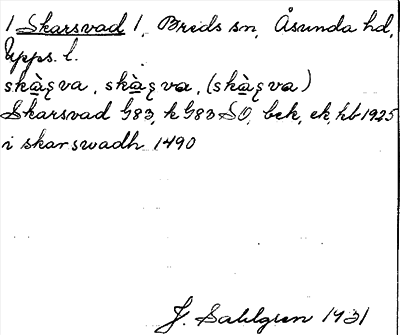 1 Skarsvad 1, Breds sn, Åsunda hd,
Upps. l.
skа̀ʂva, skа̀ʂva, (skа̀ʂva)
Skarsvad G83, k G83 SO, bek, ek, hb 1925
i skarswadh 1490
J. Sahlgren 1931